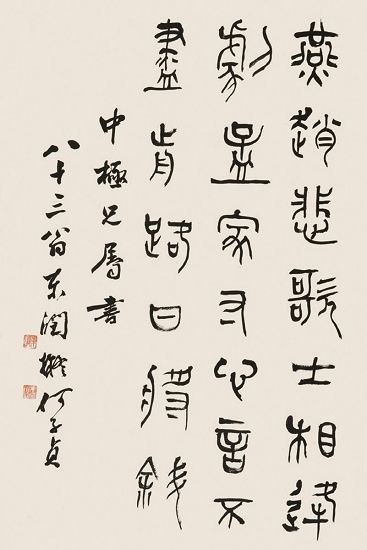 燕趙悲歌士相逢
劇孟家寸心言不
盡前路日將斜
中極兄屬書
八十三翁东潤擬何子貞